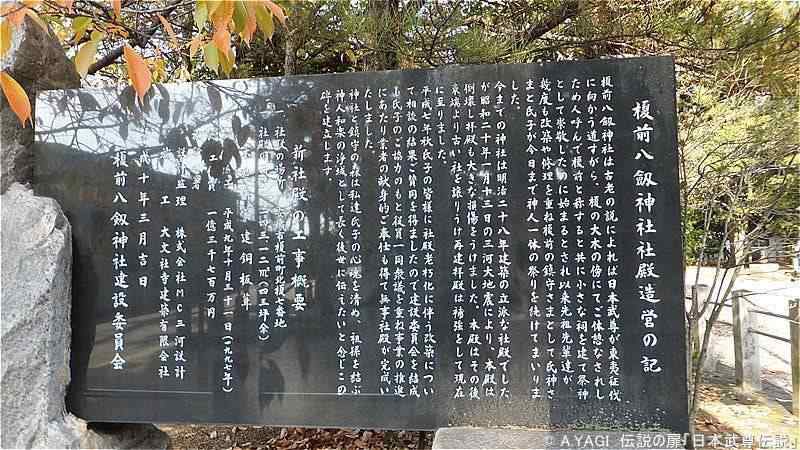 榎前八剱神社社殿造営の記
榎前八剱神社は古老の説によれば日本武尊が東夷征伐
に向かう道すがら、榎の大木の傍にてご休憩なされし
ためんで榎前と称すると共に小さな祠を建て祭神
として崇敬したのに始まるとされ以来先祖先輩達が
幾度も改築や修理を重ね榎前の鎮守さまとして氏神さ
まと氏子が今日まで神人一体の祭りを続けてまいりま
した。
今までの神社は明治二十八年建築の立派な社殿でした
が昭和二十年一月十三日の三河大地震により、本殿は
倒壊し拝殿も大きな損傷をうけました。本殿はその後
より古い社を譲りうけ再建拝殿は補強をして現在
に至りました。
平成七年秋氏子の皆様に社殿老朽化に伴う改築につい
て相談の結果ご賛同を得ましたので建設委員会を結成
し氏子のご協力のもと役員一同衆議を重ね事業の推進
にあたり業者の献身的ご奉仕も得て無事社殿が完成い
たしました。
神社と鎮守の森は私達氏子の心魂を清め、祖孫を結ぶ
神人和楽の浄域として長く後世に伝えたいと念じこの
碑を建立します。
新社殿の工事概要
一 社殿の場所 榎前町北榎七番地
一 社殿の 一四三・一二㎡(四三坪余)
建 銅板葺
平成九年十月三十一日(一九九七年)
工 費 一億三千七百万円
監理 株式会社MC三河設計
工 大文社寺建築有限会社
成十年三月吉日
榎前八剱神社建設委員会
© A.YAGI 伝説の扉「日本武尊伝説」